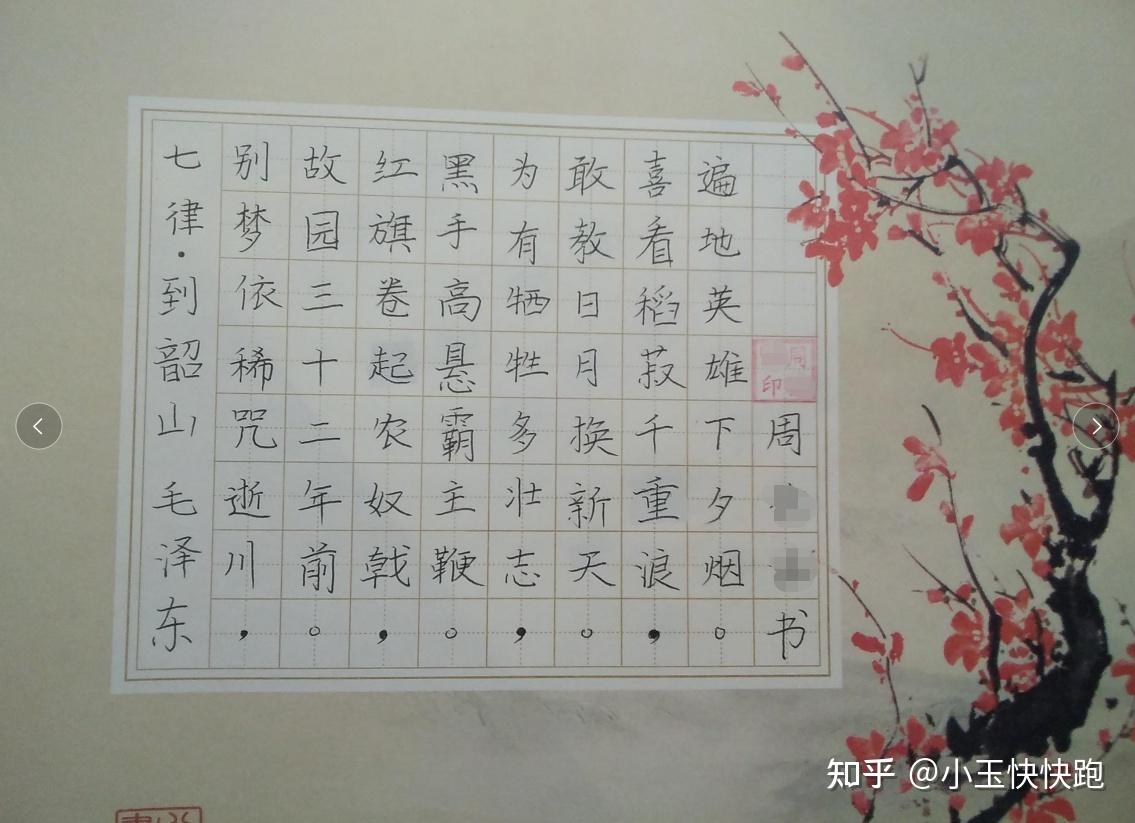 七律·到韶山毛泽东
别梦依稀咒逝川，
故园三十二年前。
红旗卷起农奴戟，
黑手高悬霸主鞭。
为有牺牲多壮志，
敢教日月换新天。
喜看稻菽千重浪，
遍地英雄下夕烟。
周
印
周书
知乎 @小玉快快跑